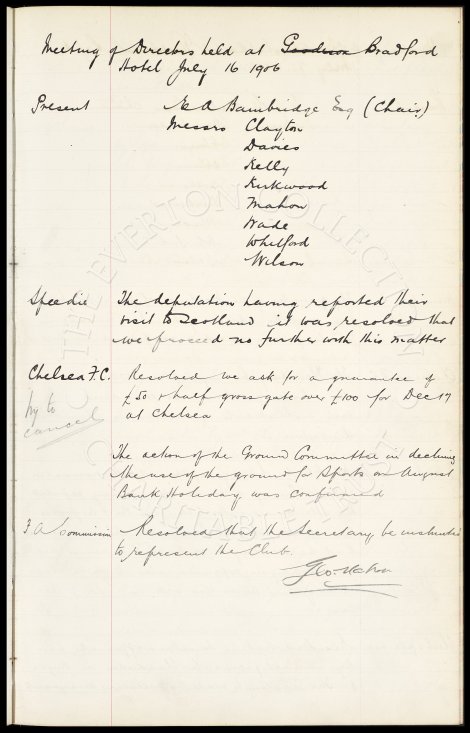 Meeting of Directors held at Goodison Bradford
Hotel July 16 1906
Present E A Bainbridge Esq (Chair)
Messrs Clayton
Davies
Kelly
Kirkwood
Mahon
Wade
Whitford
Wilson
Speedie The deputation having reported their
visit to Scotland it was resolved that
we proceed no further with this matter
Chelsea F.C. Resolved we ask for a guarantee of
£50 & half gross gate over £100 for Dec 17
at Chelsea
try to
cancel
The action of the Ground Committee in declining
the use of the ground for Sports on August
Bank Holiday was confirmed
F A Commission Resolved that the Secretary be instructed
to represent the Club.
Geo. Mahon
THE EVERTON COLLECTION CHARITABLE TRUST